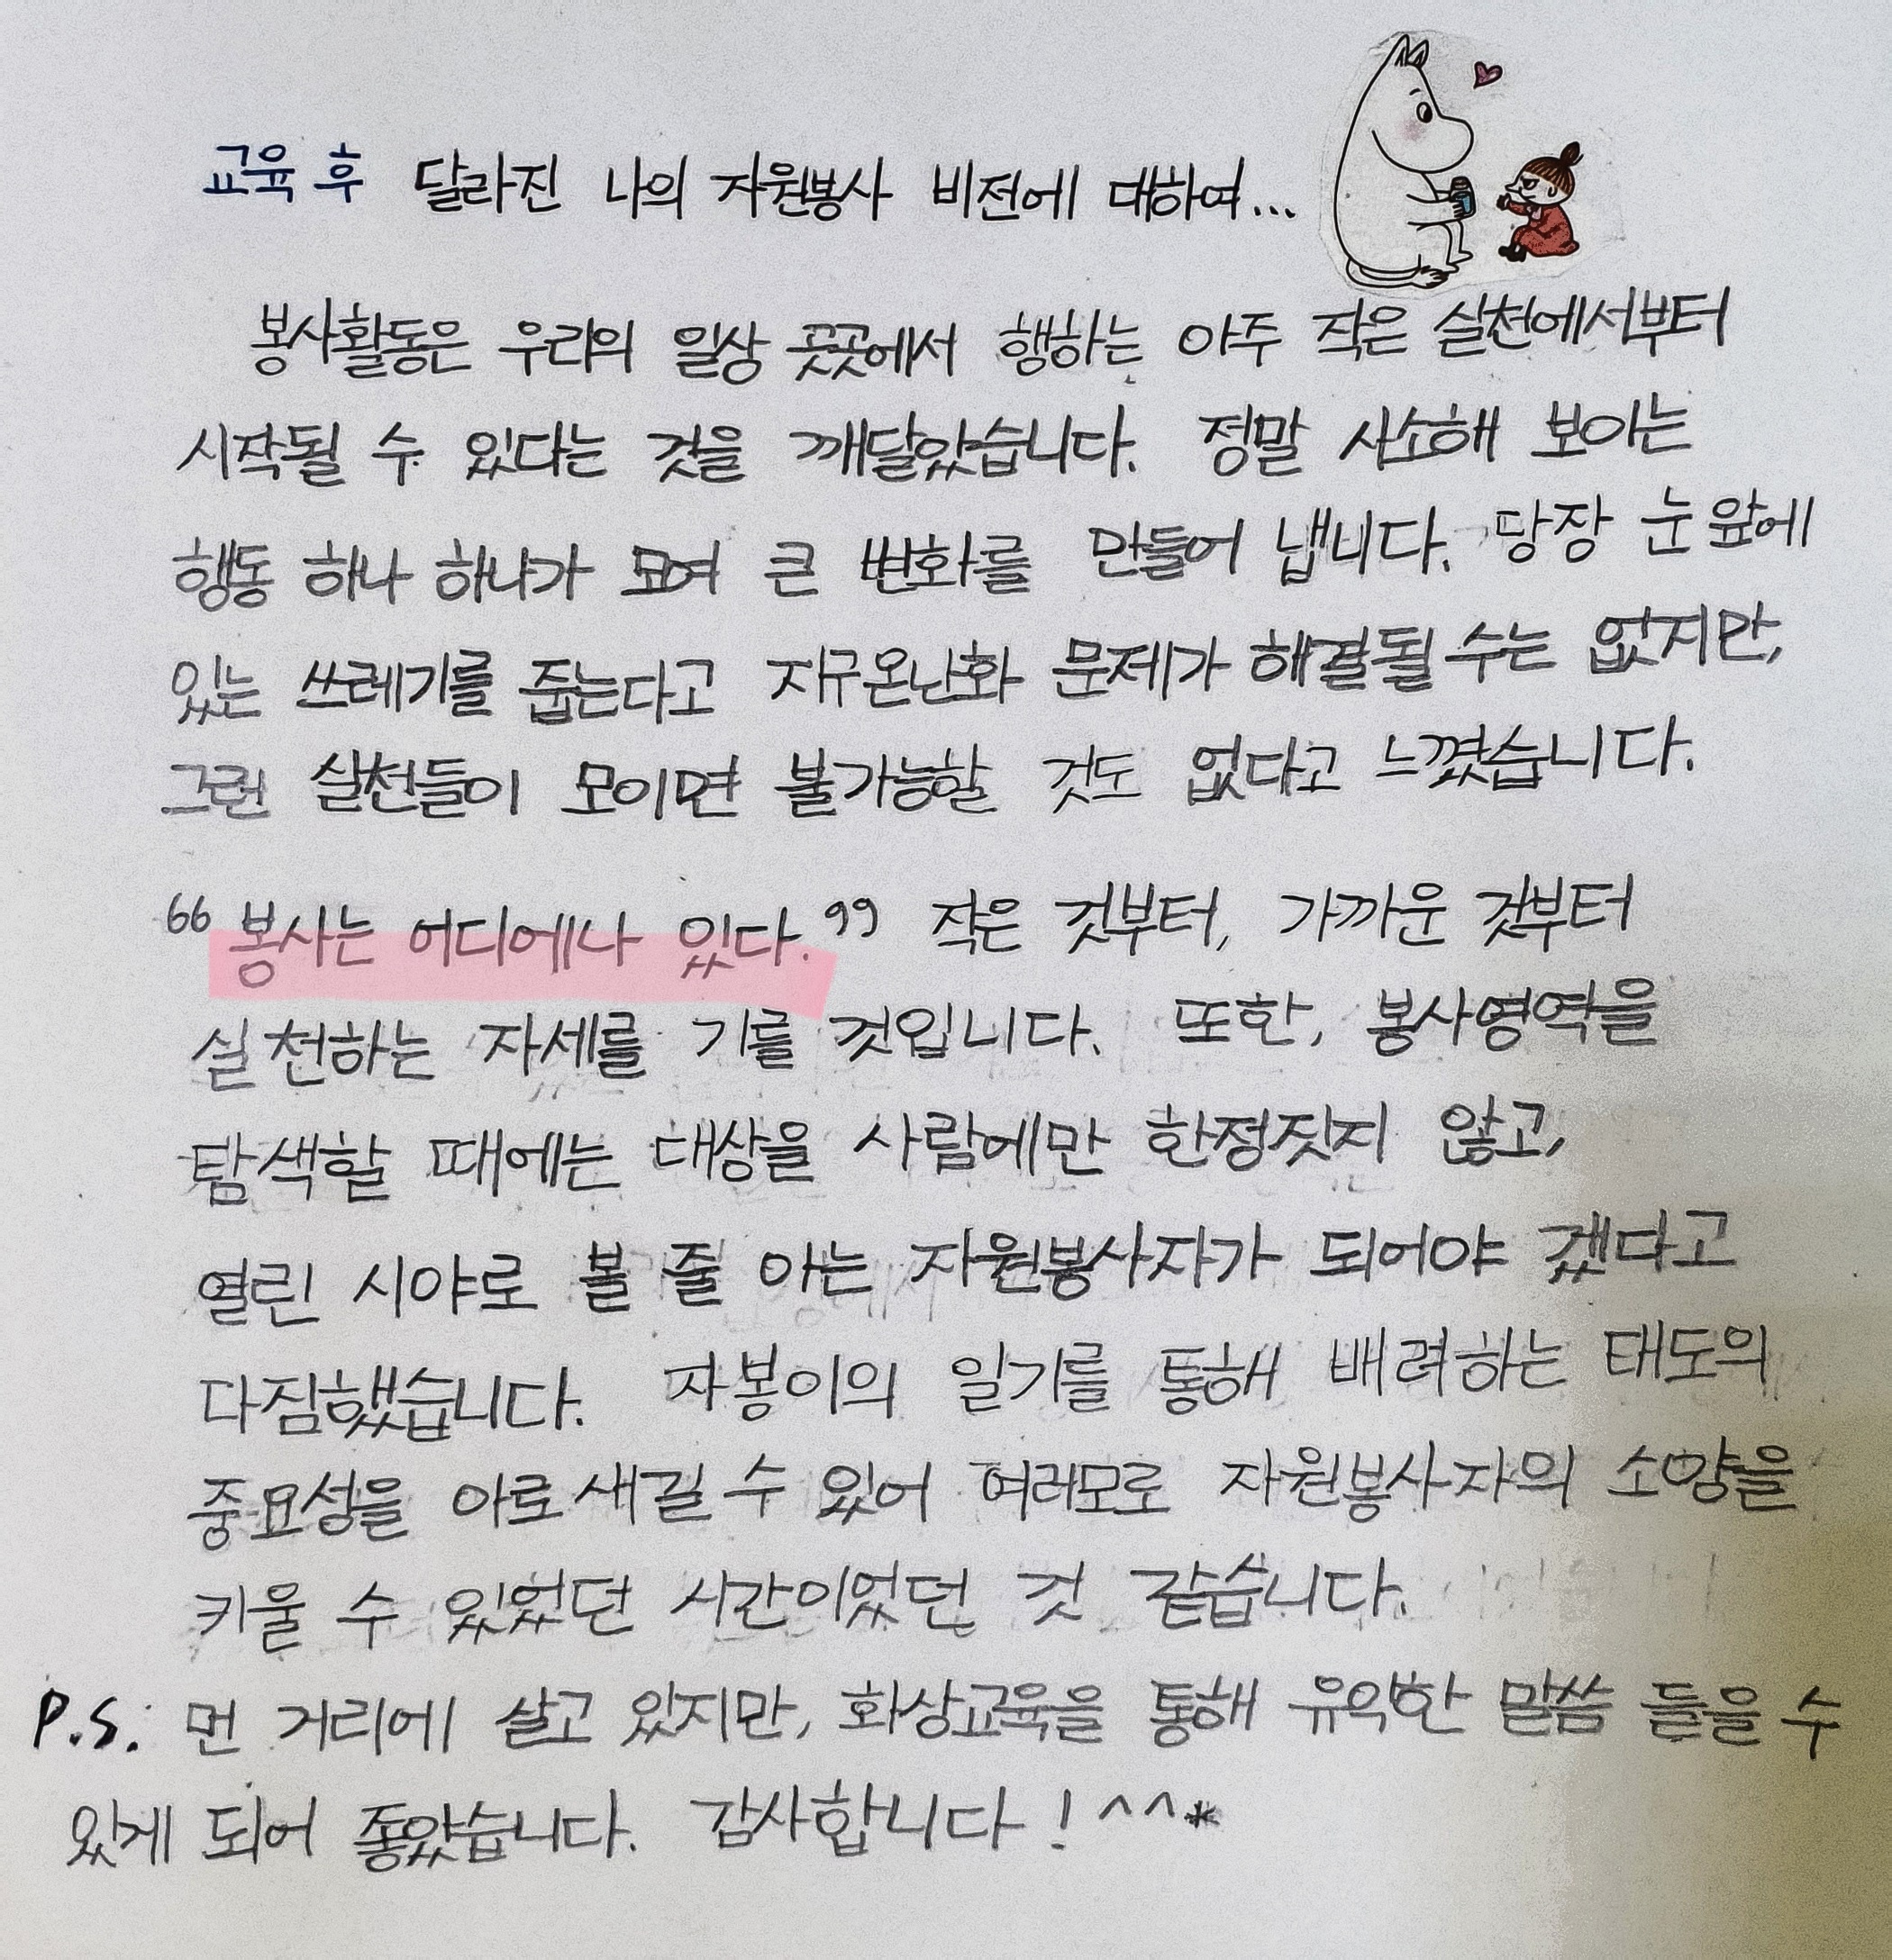 교육 후 달라진 나의 자원봉사 비전에 대하여...
봉사활동은 우리의 일상 곳곳에서 행하는 아주 작은 실천에서부터
시작될 수 있다는 것을 깨달았습니다. 정말 사소해 보이는
행동 하나 하나가 모여 큰 변화를 만들어 냅니다. 당장 눈 앞에
있는 쓰레기를 줍는다고 지구온난화 문제가 해결될 수는 없지만,
그런 실천들이 모이면 불가능할 것도 없다고 느꼈습니다.
“봉사는 어디에나 있다.” 작은 것부터, 가까운 것부터
실천하는 자세를 기를 것입니다. 또한, 봉사영역을
탐색할 때에는 대상을 사람에만 한정짓지 않고,
열린 시야로 볼 줄 아는 자원봉사자가 되어야 겠다고
다짐했습니다. 자봉이의 일기를 통해 배려하는 태도의
중요성을 아로새길 수 있어 여러모로 자원봉사자의 소양을
키울 수 있었던 시간이었던 것 같습니다.
P.S. 먼 거리에 살고 있지만, 화상교육을 통해 유익한 말씀 들을 수
있게 되어 좋았습니다. 감사합니다! ^^*